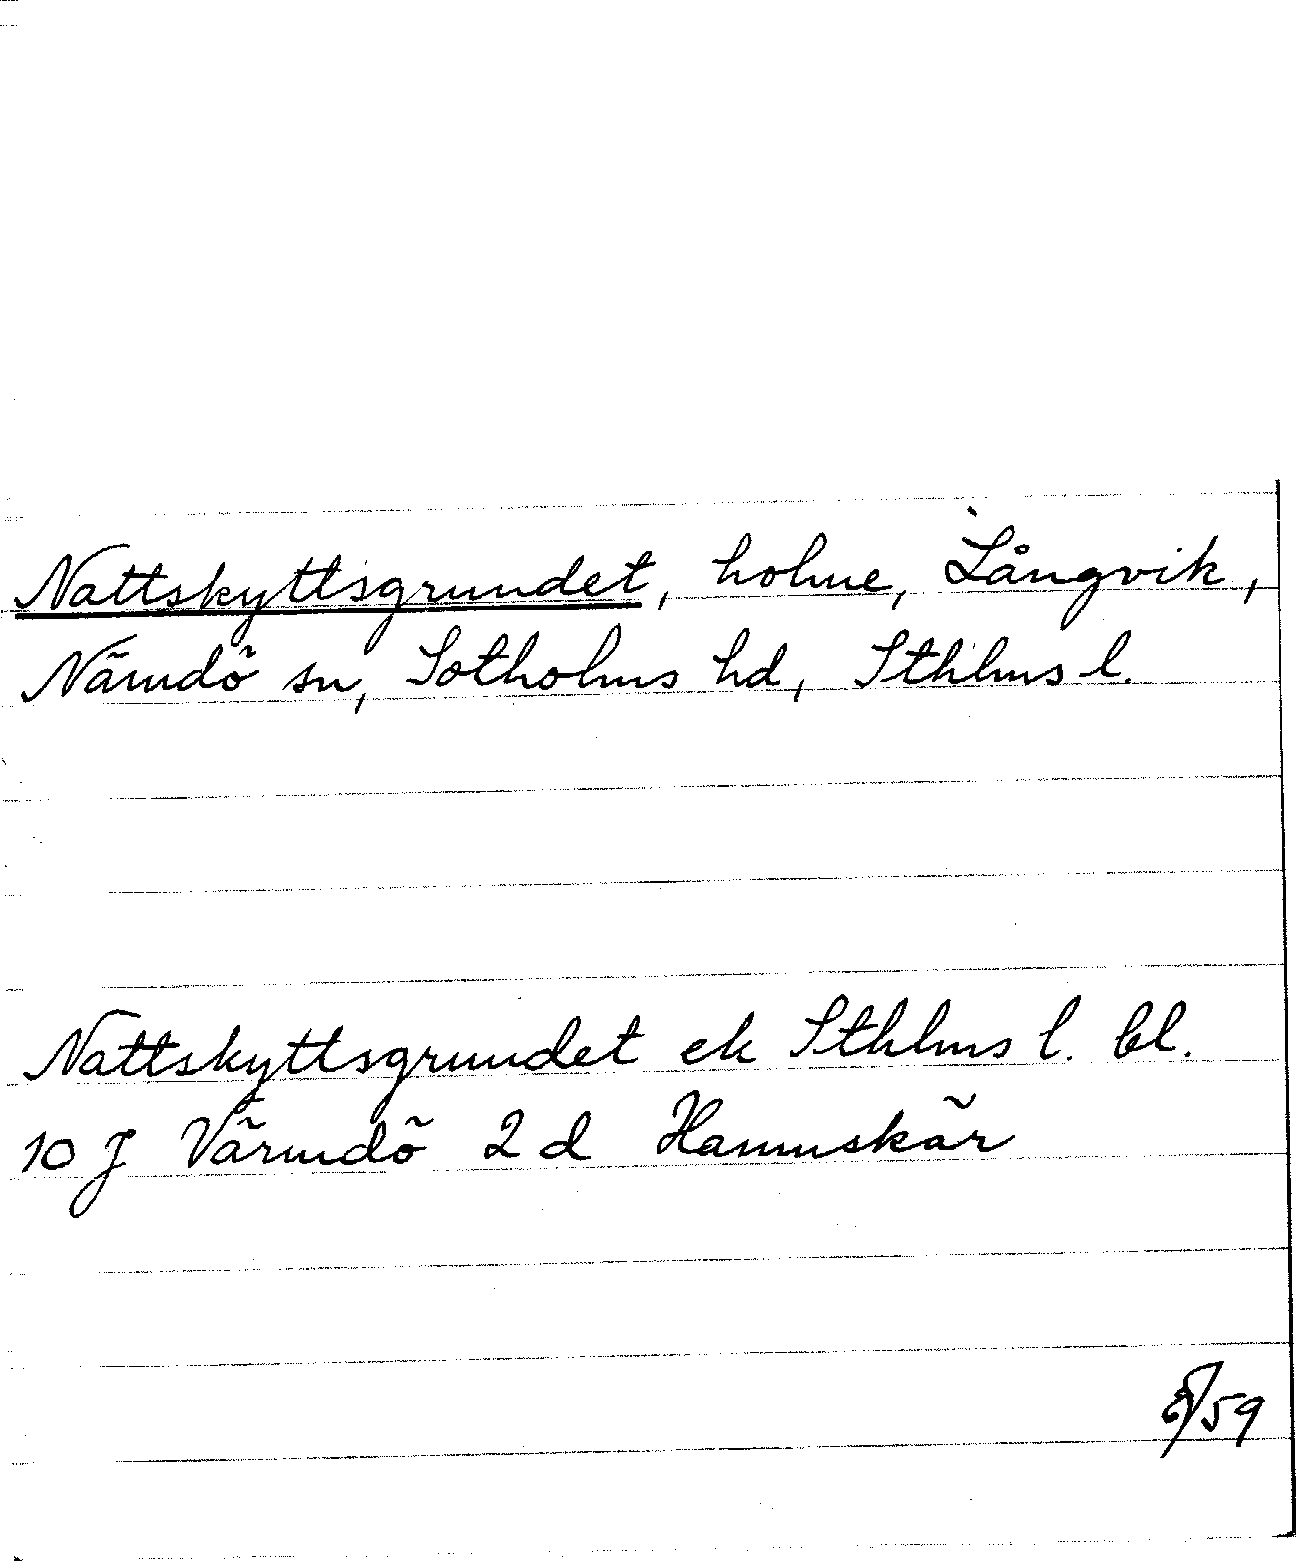 Nattskyttsgrundet, holme, Långvik,
Nämdö sn, Sotholms hd, Sthlms l.
Nattskyttsgrundet ek Sthlms l. bl.
10 J Värmdö 2 d Hamnskär
59